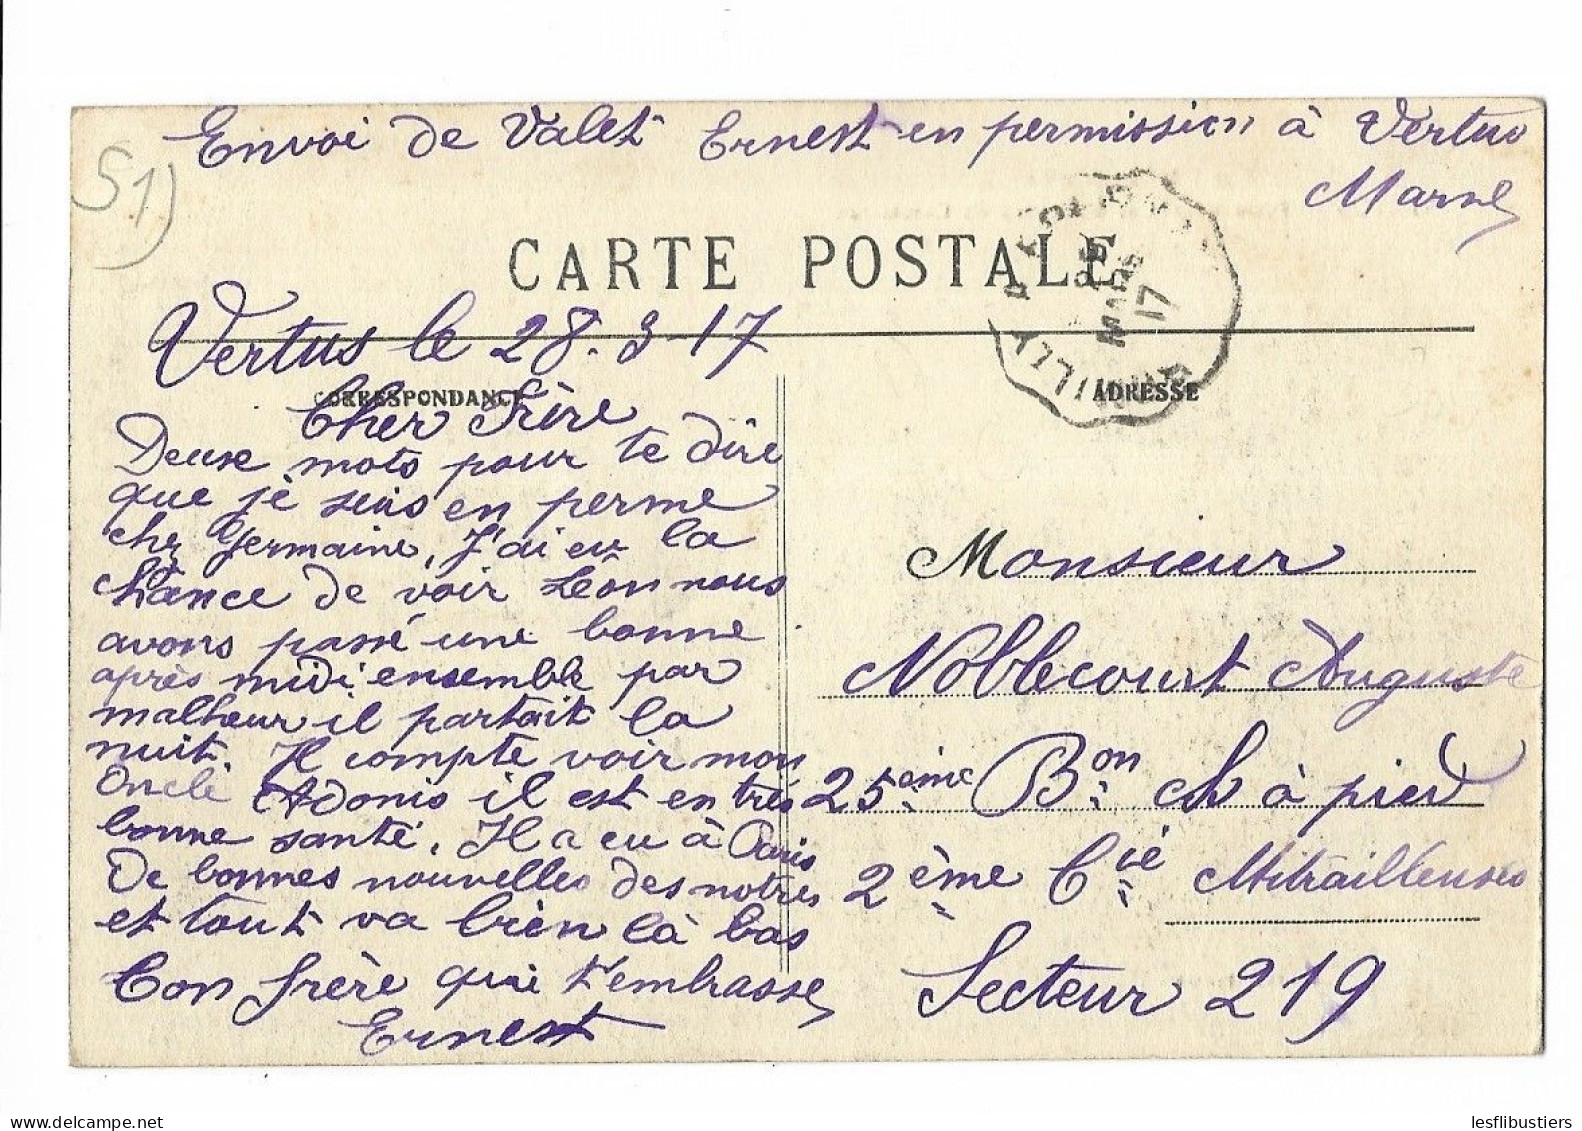 Envoi de Valet Ernest en permission à Vertus
Marne
51)
CARTE POSTALE
28
MARS
17
Vertus le 28.3.17
CORRESPONDANCE
ADRESSE
Cher Frère
Deux mots pour te dire
que je suis en perme
chez Germaine, J'ai eu la
chance de voir Léon nous
avons passé une bonne
après midi ensemble par
malheur il partait la
nuit. Il compte voir mon
Oncle Adonis il est en très
bonne santé. Il a eu à Paris
De bonnes nouvelles des notres
et tout va bien là bas
Ton frère qui t'embrasse
Ernest
Monsieur
Noblecourt Auguste
25ème Bon Ch à pied
2ème Cie Mitrailleuses
Secteur 219
lesflibustiers